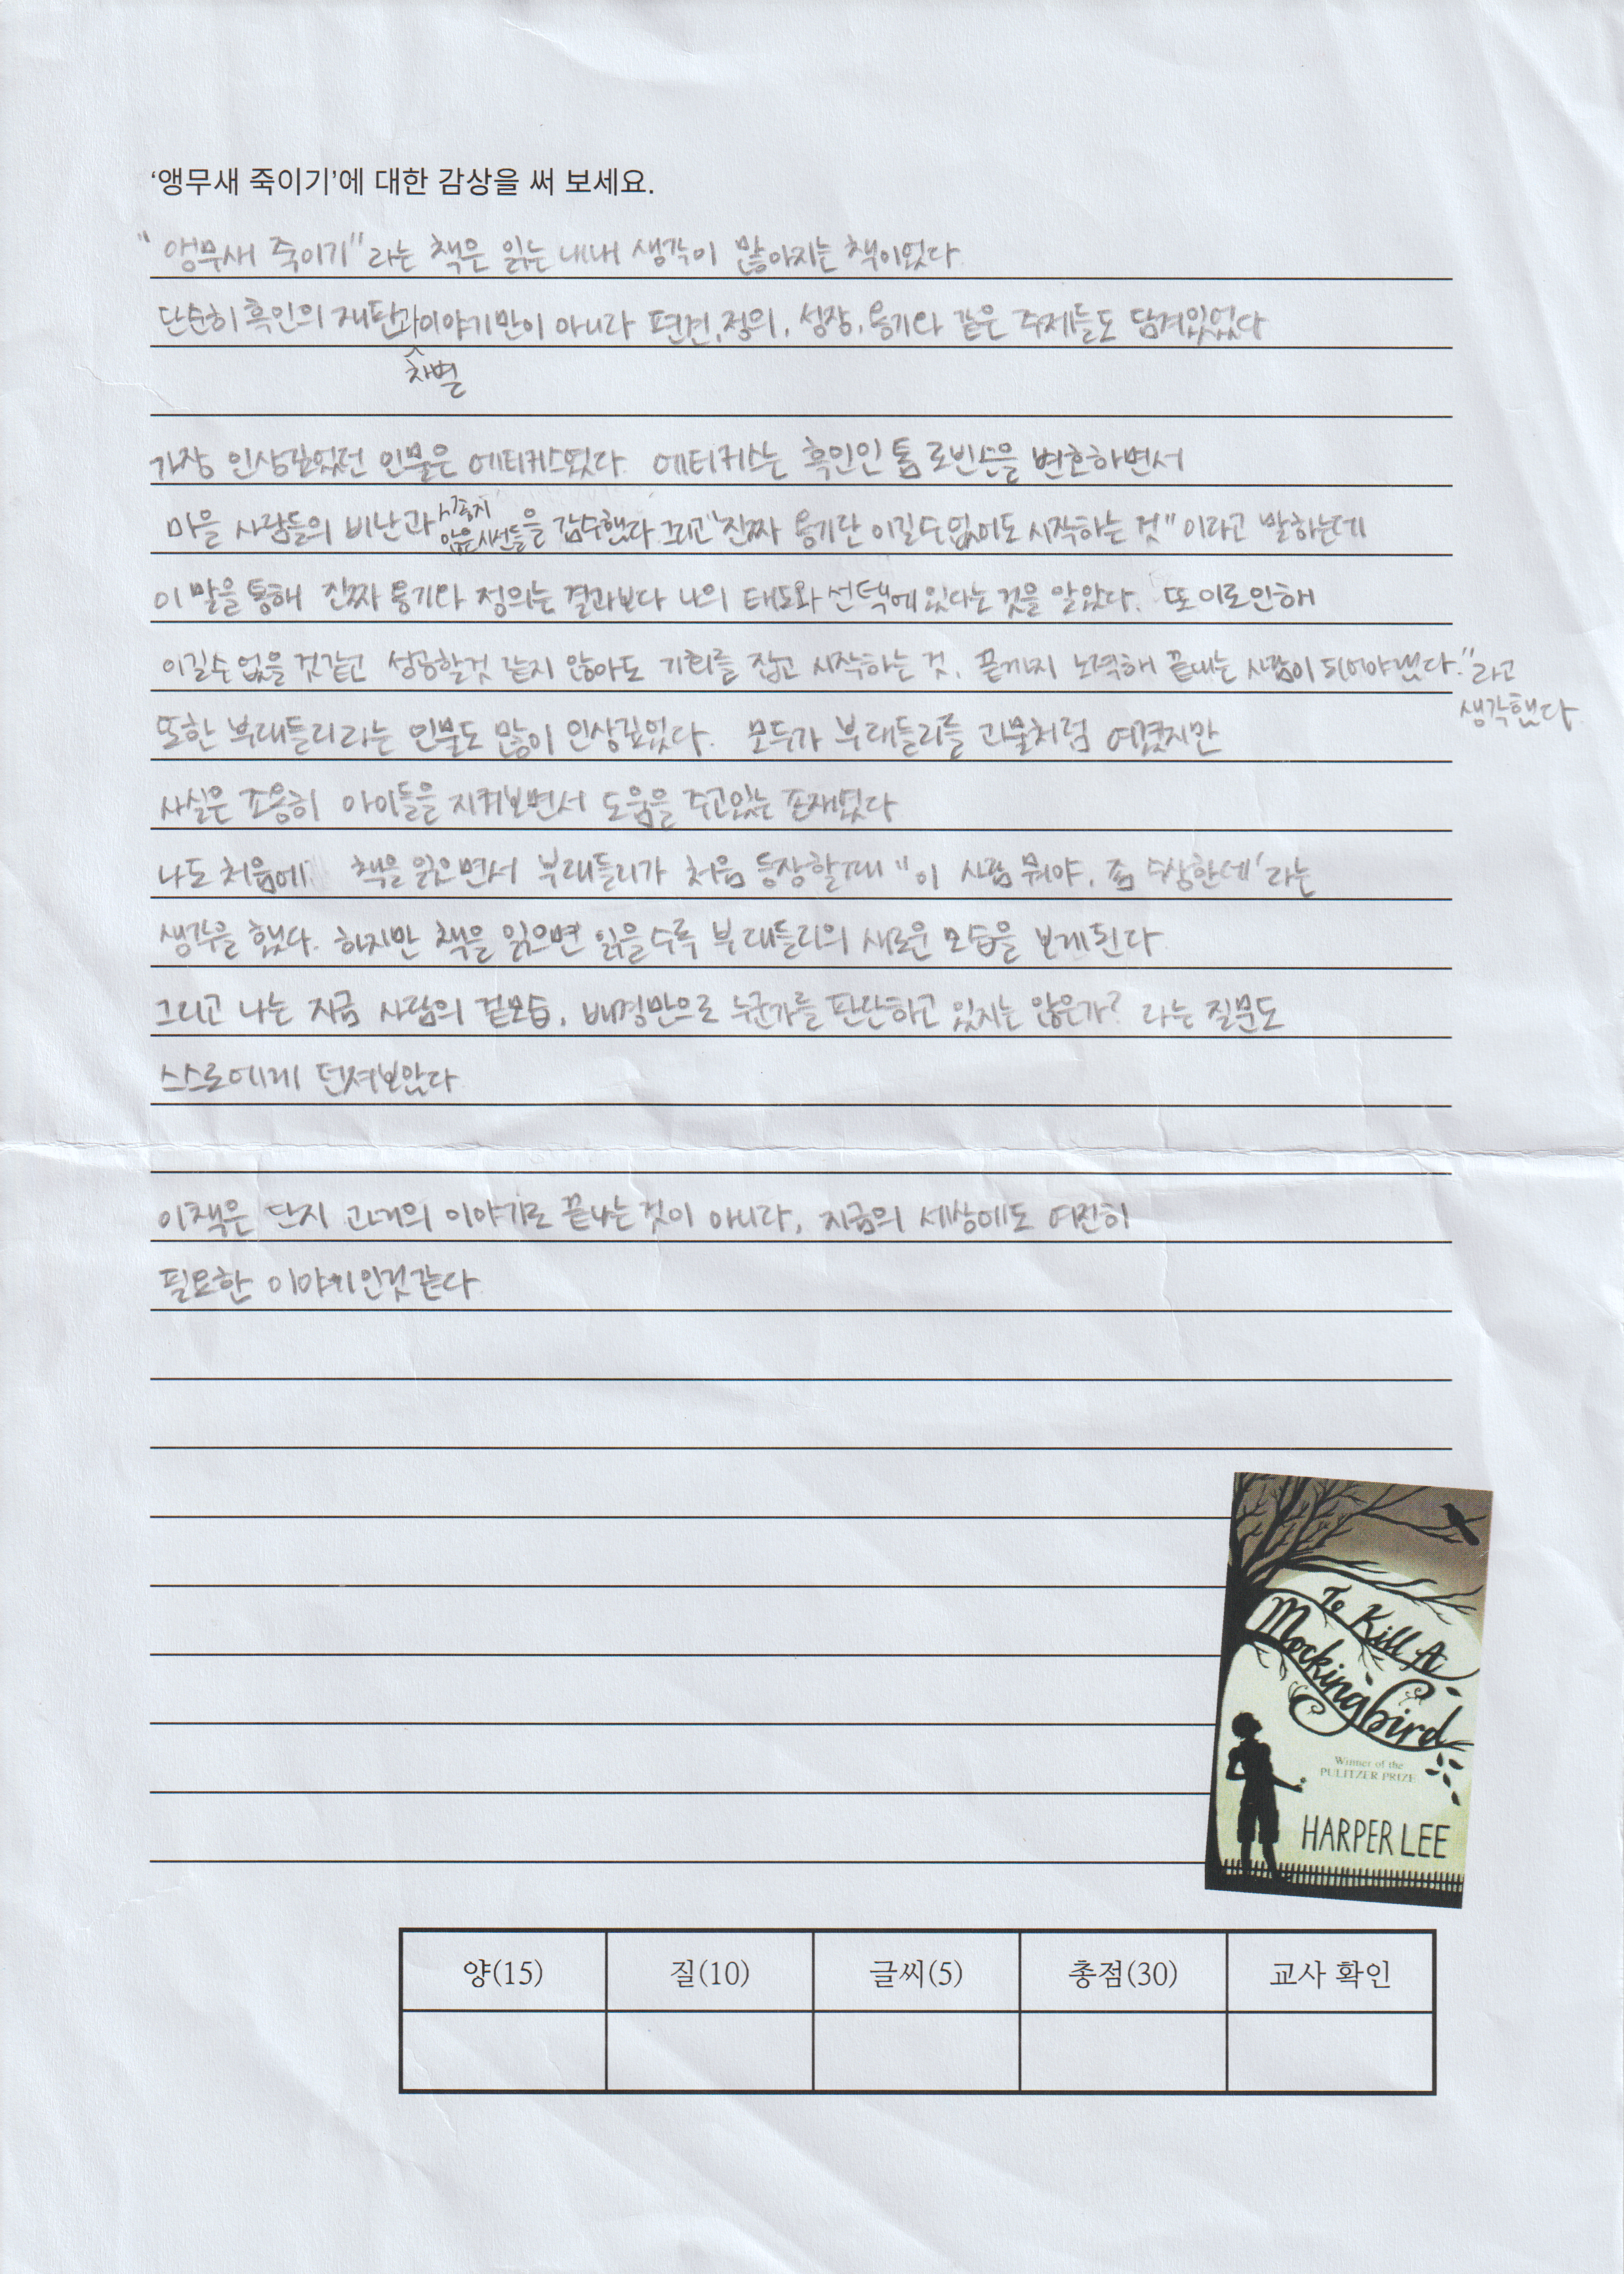 ‘앵무새 죽이기’에 대한 감상을 써 보세요.
"앵무새 죽이기"라는 책은 읽는 내내 생각이 많아지는 책이었다.
단순히 흑인의 재판과이야기만이 아니라 편견, 정의, 성장, 용기와 같은 주제들도 담겨있었다
차별
가장 인상깊었던 인물은 에티커스였다. 에티커스는 흑인인 톰 로빈슨을 변호하면서
마을 사람들의 비난과 시종지 않은시선들을 감수했다. 그리고 "진짜 용기란 이길수없어도 시작하는 것" 이라고 말하는데
이 말을 통해 진짜 용기와 정의는 결과보다 나의 태도와 선택에 있다는 것을 알았다. 또 이로인해
이길수 없을 것같고 성공할것 같지 않아도 기회를 잡고 시작하는 것, 끝까지 노력해 끝내는 사람이 되어야겠다."라고
생각했다.
또한 부래들리라는 인물도 많이 인상깊었다. 모두가 부래들리를 괴물처럼 여겼지만
사실은 조용히 아이들을 지켜보면서 도움을 주고있는 존재였다
나도 처음에 책을 읽으면서 부래들리가 처음 등장할때 "이 사람 뭐야, 좀 수상한데'라는
생각을 했다. 하지만 책을 읽으면 읽을수록 부래들리의 새로운 모습을 보게된다.
그리고 나는 지금 사람의 겉모습, 배경만으로 누군가를 판단하고 있지는 않은가? 라는 질문도
스스로에게 던져보았다
이책은 단지 과거의 이야기로 끝나는 것이 아니라, 지금의 세상에도 여전히
필요한 이야기인것같다.
To Kill A
Mockingbird
Winner of the
PULITZER PRIZE
HARPER LEE
양(15) 질(10) 글씨(5) 총점(30) 교사 확인